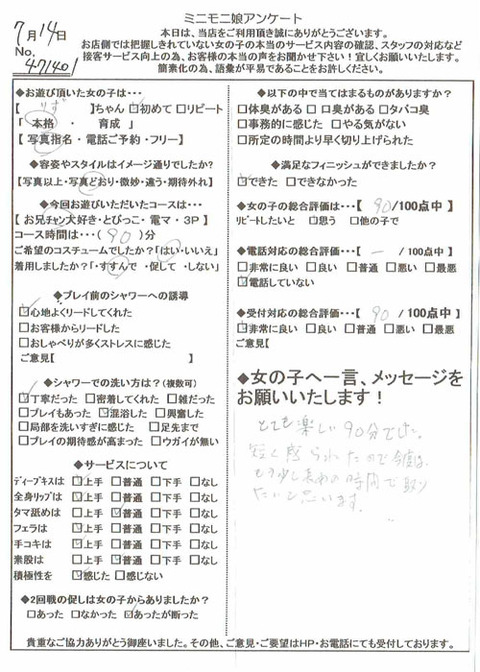 ミニモニ娘アンケート
7月14日
No.
47140
本日は、当店をご利用頂き誠にありがとうございます。
お店側では把握しきれていない女の子の本当のサービス内容の確認、スタッフの対応など
接客サービス向上の為、お客様の本当の声をお聞かせ下さい！宜しくお願いいたします。
簡素化の為、語彙が平易であることをお許しください。
◆お遊び頂いた女の子は…
【 りず 】ちゃん ☑初めて □リピート
「 本格 ・ 育成 」
【 写真指名・電話ご予約・フリー】
◆容姿やスタイルはイメージ通りでしたか?
【写真以上・写真どおり・微妙・違う・期待外れ】
◆今回お遊びいただいたコースは…
【 お兄チャン大好き・とびっこ・電マ・3P 】
コース時間は…( 90 )分
ご希望のコスチュームでしたか?「はい・いいえ」
着用しましたか?「・すすんで ・促して ・しない」
◆プレイ前のシャワーへの誘導
☑心地よくリードしてくれた
□お客様からリードした
□おしゃべりが多くストレスに感じた
ご意見【 】
◆シャワーでの洗い方は?(複数可)
☑丁寧だった □密着してくれた □雑だった
□プレイもあった ☑混浴した □興奮した
□局部を洗いすぎに感じた □足先まで
□プレイの期待感が高まった □ウガイが無い
◆サービスについて
ディープキスは ☑上手 □普通 □下手 □なし
全身リップは ☑上手 □普通 □下手 □なし
タマ舐めは □上手 ☑普通 □下手 □なし
フェラは ☑上手 □普通 □下手 □なし
手コキは ☑上手 □普通 □下手 □なし
素股は □上手 ☑普通 □下手 □なし
積極性を ☑感じた □感じない
◆2回戦の促しは女の子からありましたか?
□あった □なかった ☑あったが断った
◆以下の中で当てはまるものがありますか?
□体臭がある □口臭がある □タバコ臭
□事務的に感じた □やる気がない
□所定の時間より早く切り上げられた
◆満足なフィニッシュができましたか?
☑できた □できなかった
◆女の子の総合評価は…【 90 /100点中 】
リピートしたいと □思う □他の子で
◆電話対応の総合評価…【 － /100点中】
□非常に良い □良い □普通 □悪い □最悪
☑電話していない
◆受付対応の総合評価…【 90 /100点中】
☑非常に良い □良い □普通 □悪い □最悪
ご意見【
◆女の子へ一言、メッセージを
お願いいたします！
とても楽しい90分でした。
短く感じられたので今度は、
もう少し長めの時間で取り
たいと思います。
貴重なご協力ありがとう御座いました。その他、ご意見・ご要望はHP・お電話にても受付しております。